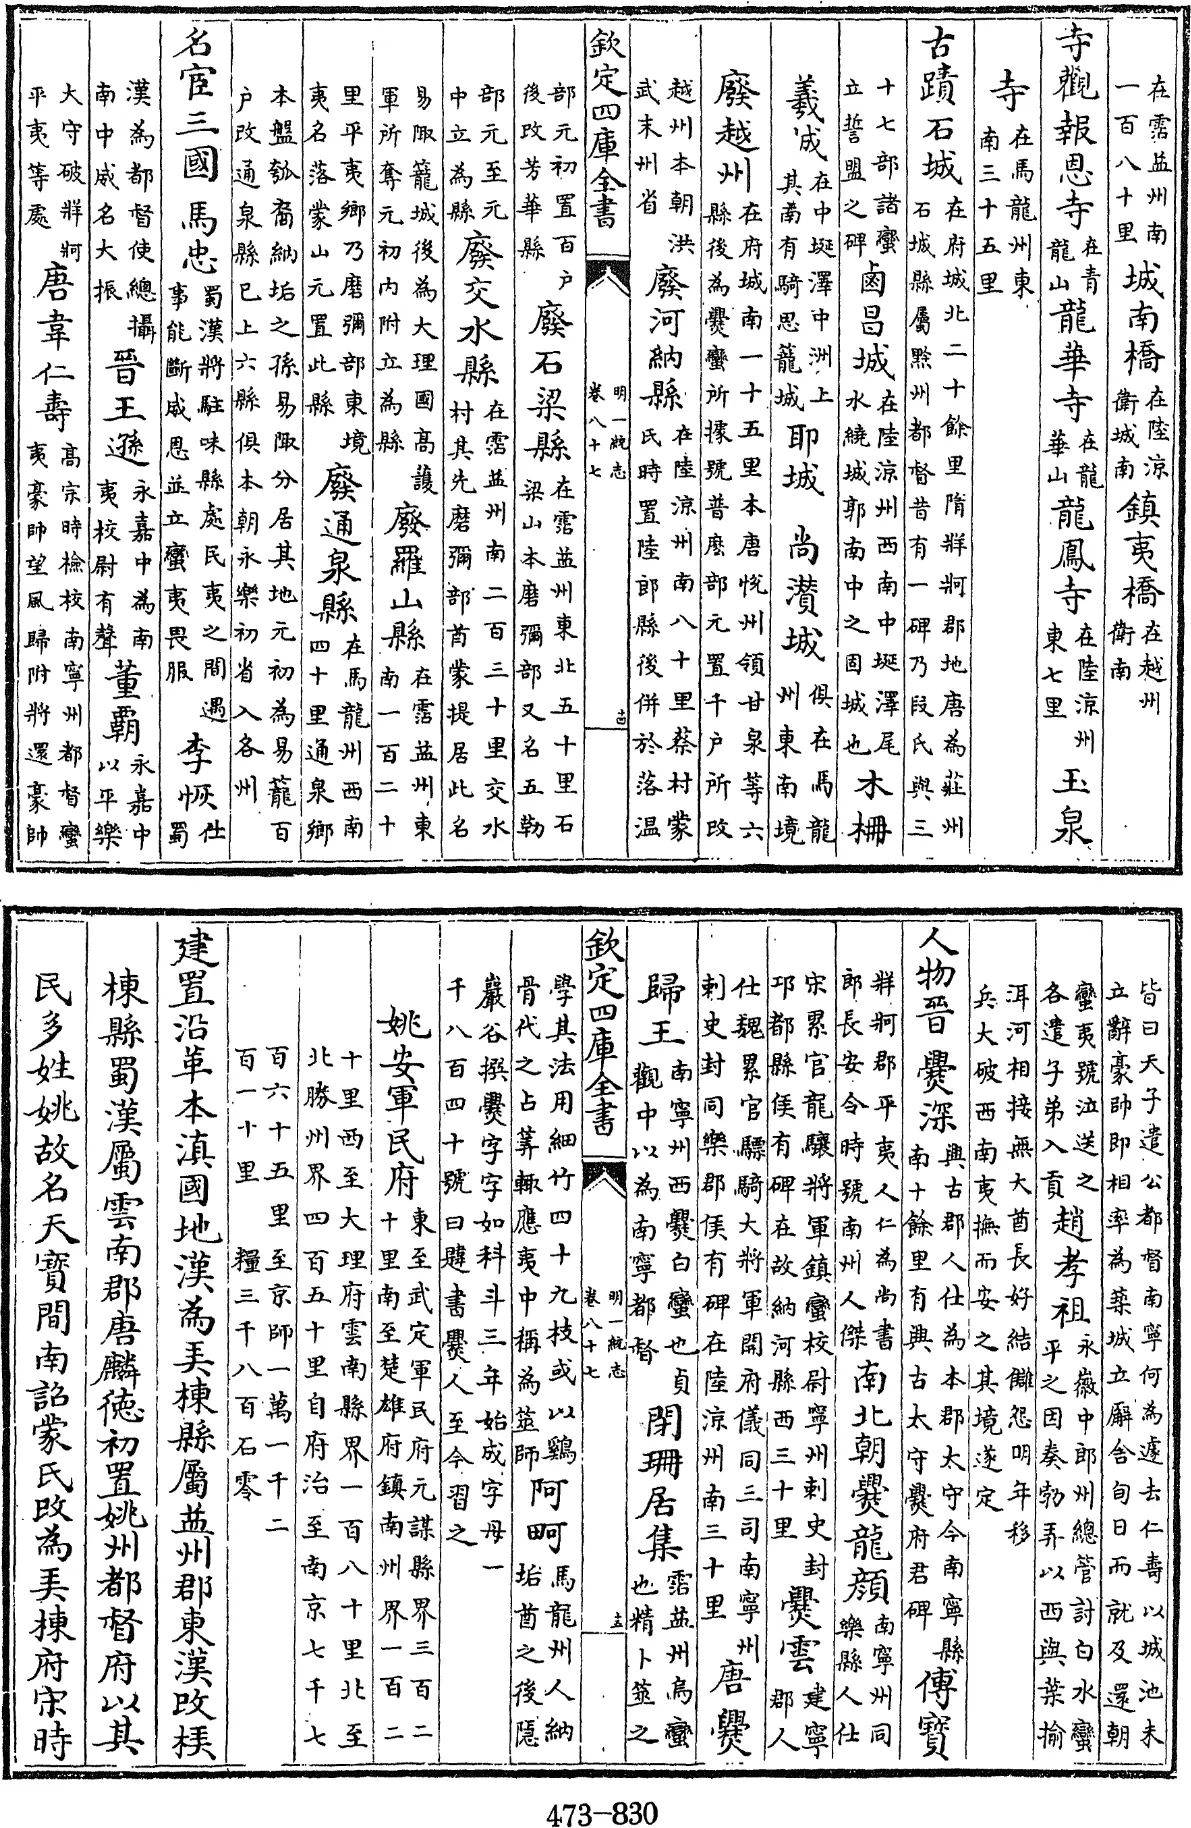 在霑益州南一百八十里城南橋在陸涼衛城南鎮夷橋在越州衛南
寺觀報恩寺在青龍山龍華寺在龍華山龍鳳寺在陸涼州東七里玉泉
寺在馬龍州東南三十五里
古蹟石城在府城北二十餘里隋牂牁郡地唐為莊州石城縣屬黔州都督昔有一碑乃段氏與三
十七部諸蠻立誓盟之碑鹵昌城在陸涼州西南中埏澤尾水繞城郭南中之固城也木柵
城在中埏澤中洲上其南有騎思籠城耶城尚濽城俱在馬龍州東南境
廢越州在府城南一十五里本唐悅州領甘泉等六縣後為爨蠻所據號普麽部元置千户所改
越州本朝洪武末州省廢河納縣在陸涼州南八十里蔡村蒙氏時置陸郎縣後併於落温
欽定四庫全書 明一統志 卷八十七 十四
部元初置百户後改芳華縣廢石梁縣在霑益州東北五十里石梁山本磨彌部又名五勒
部元至元中立為縣廢交水縣在霑益州南二百三十里交水村其先磨彌部酋蒙提居此名
易陬籠城後為大理國高護軍所奪元初内附立為縣廢羅山縣在霑益州東南一百二十
里平夷鄉乃磨彌部東境夷名落蒙山元置此縣廢通泉縣在馬龍州西南四十里通泉鄉
本盤瓠裔納垢之孫易陬分居其地元初為易籠百户改通泉縣已上六縣俱本朝永樂初省入各州
名宦三國馬忠蜀漢將駐味縣處民夷之間遇事能斷威恩並立蠻夷畏服李恢仕蜀
漢為都督使總攝南中威名大振晉王遜永嘉中為南夷校尉有聲董霸永嘉中以平樂
大守破牂牁平夷等處唐韋仁壽高宗時檢校南寧州都督蠻夷豪帥望風歸附將還豪帥
皆曰天子遣公都督南寧何為遽去仁壽以城池未立辭豪帥即相率為築城立廨舍旬日而就及還朝
蠻夷號泣送之各遣子弟入貢趙孝祖永徽中郎州總管討白水蠻平之因奏勃弄以西與葉揄
洱河相接無大酋長好結讎怨明年移兵大破西南夷撫而安之其境遂定
人物晉爨深興古郡人仕為本郡太守今南寧縣南十餘里有興古太守爨府君碑傅寶
牂牁郡平夷人仁為尚書郎長安令時號南州人傑南北朝爨龍顏南寧州同樂縣人仕
宋累官龍驤將軍鎮蠻校尉寧州刺史封邛都縣侯有碑在故納河縣西三十里爨雲建寧郡人
仕魏累官驃騎大將軍開府儀同三司南寧州刺史封同樂郡侯有碑在陸涼州南三十里唐爨
歸王南寧州西爨白蠻也貞觀中以為南寧都督閉珊居集霑益州烏蠻也精卜筮之
欽定四庫全書 明一統志 卷八十七 十五
學其法用細竹四十九枝或以鷄骨代之占筭輒應夷中稱為筮師阿畸馬龍州人納垢酋之後隱
巖谷撰爨字字如科斗三年始成字母一千八百四十號曰韙書爨人至今習之
姚安軍民府東至武定軍民府元謀縣界三百二十里南至楚雄府鎮南州界一百二
十里西至大理府雲南縣界一百八十里北至北勝州界四百五十里自府治至南京七千七
百六十五里至京師一萬一千二百一十里糧三千八百石零
建置沿革本滇國地漢為弄棟縣屬益州郡東漢改梇
棟縣蜀漢屬雲南郡唐麟德初置姚州都督府以其
民多姓姚故名天寶間南詔蒙氏改為弄棟府宋時
473-830